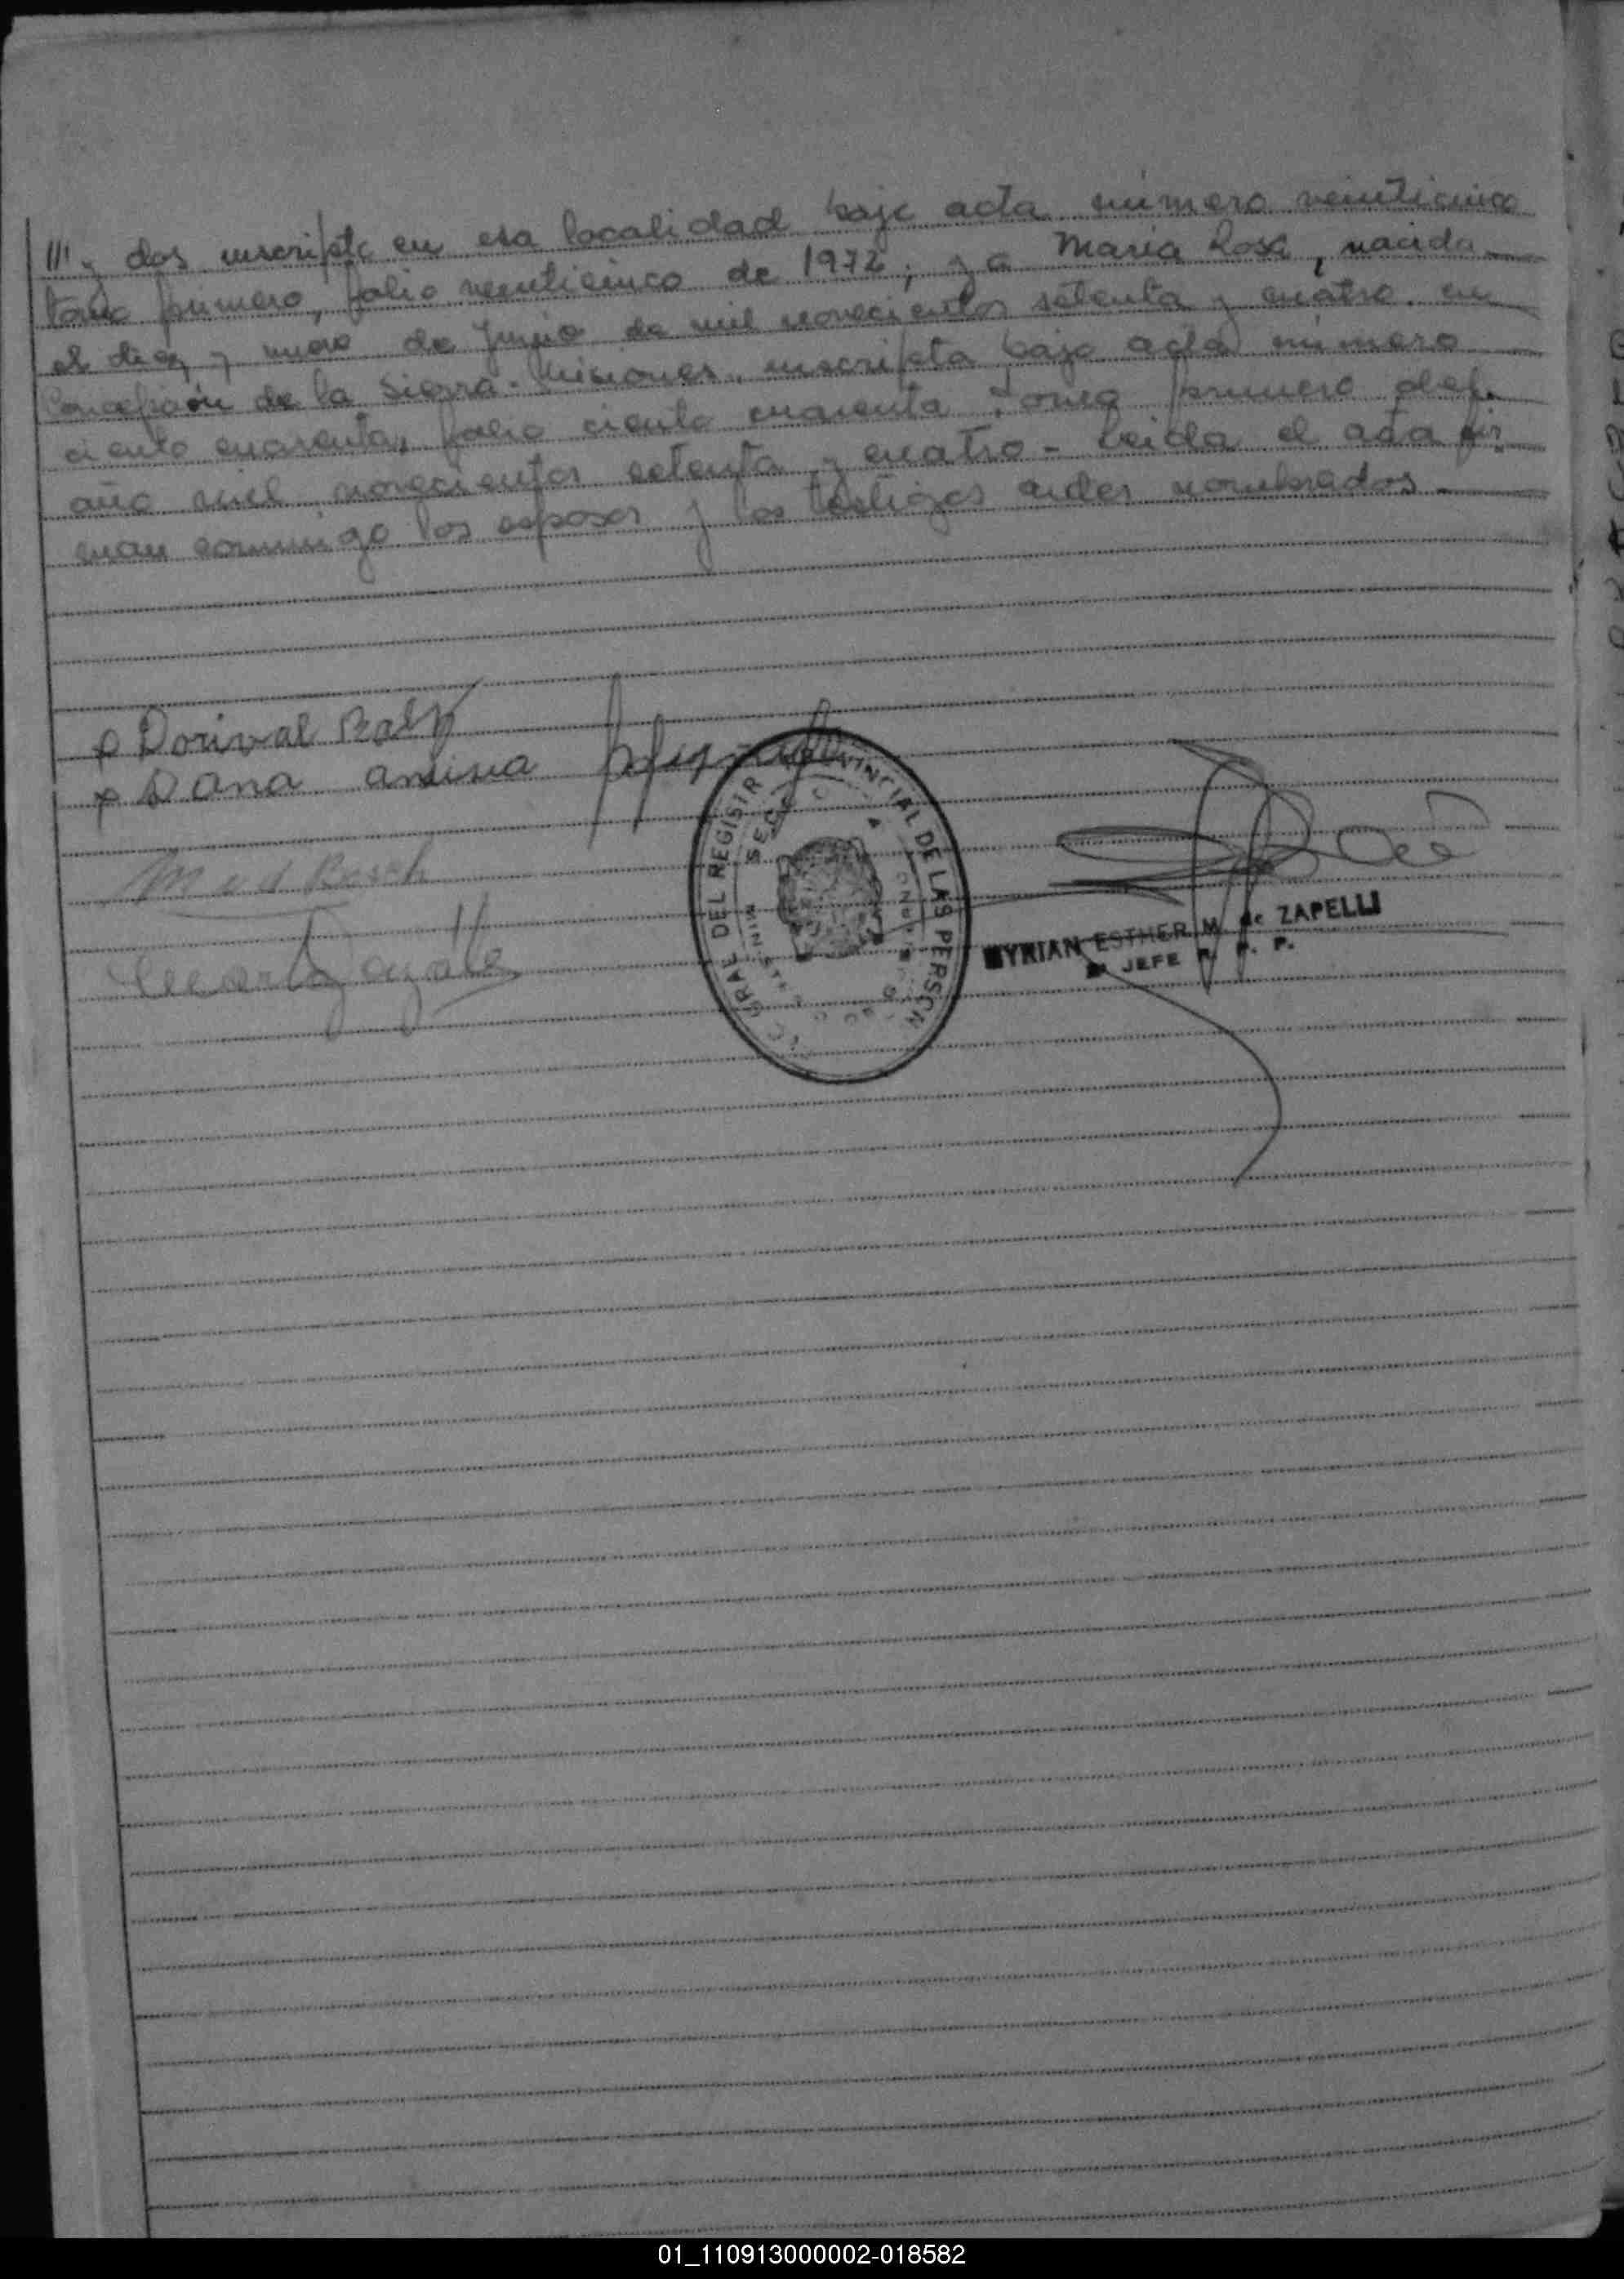 /// y dos inscripta en esa localidad bajo acta número veinticinco
tomo primero, folio veinticinco de 1972; y a María Rosa, nacida
el diez y nueve de Junio de mil novecientos setenta y cuatro en
Concepción de la Sierra - Misiones, inscripta bajo acta número
ciento cuarenta, folio ciento cuarenta, tomo primero del
año mil novecientos setenta y cuatro - Leida el acta fir
man conmigo los esposos y los testigos antes nombrados
x Dorival
x Dana
GRAL DEL REGISTR PROVINCIAL DE LAS PERSON
MYRIAN ESTHER M. de ZAPELLI
JEFE R. P. P.
01_110913000002-018582